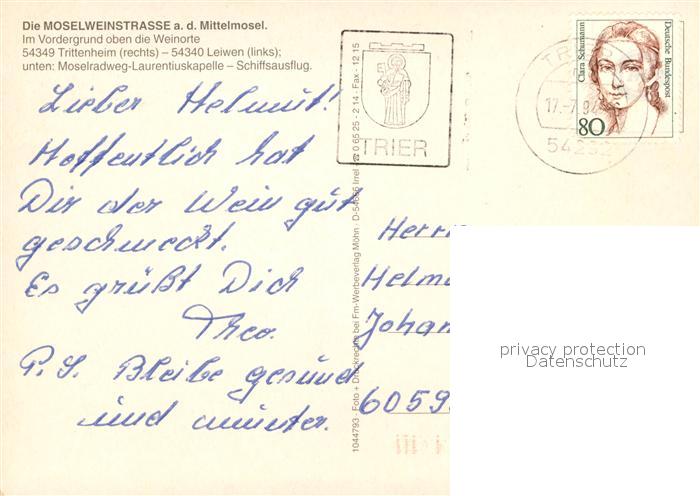 Die MOSELWEINSTRASSE a. d. Mittelmosel.
Im Vordergrund oben die Weinorte
54349 Trittenheim (rechts) – 54340 Leiwen (links);
unten: Moselradweg-Laurentiuskapelle – Schiffsausflug.
Lieber Helmut!
Hoffentlich hat
Dir der Wein gut
geschmeckt.
Es grüßt Dich
Theo.
P. S. Bleibe gesund
und munter.
1044793 · Foto + Druckrechte bei Fm-Werbeverlag Möhn · D-54666 Irrel · ☎ 0 65 25 - 2 14 · Fax · 12 15
TRIER
17.-7.
Clara Schumann
Deutsche Bundespost
80
Herrn
Helm
Johan
6059
privacy protection
Datenschutz